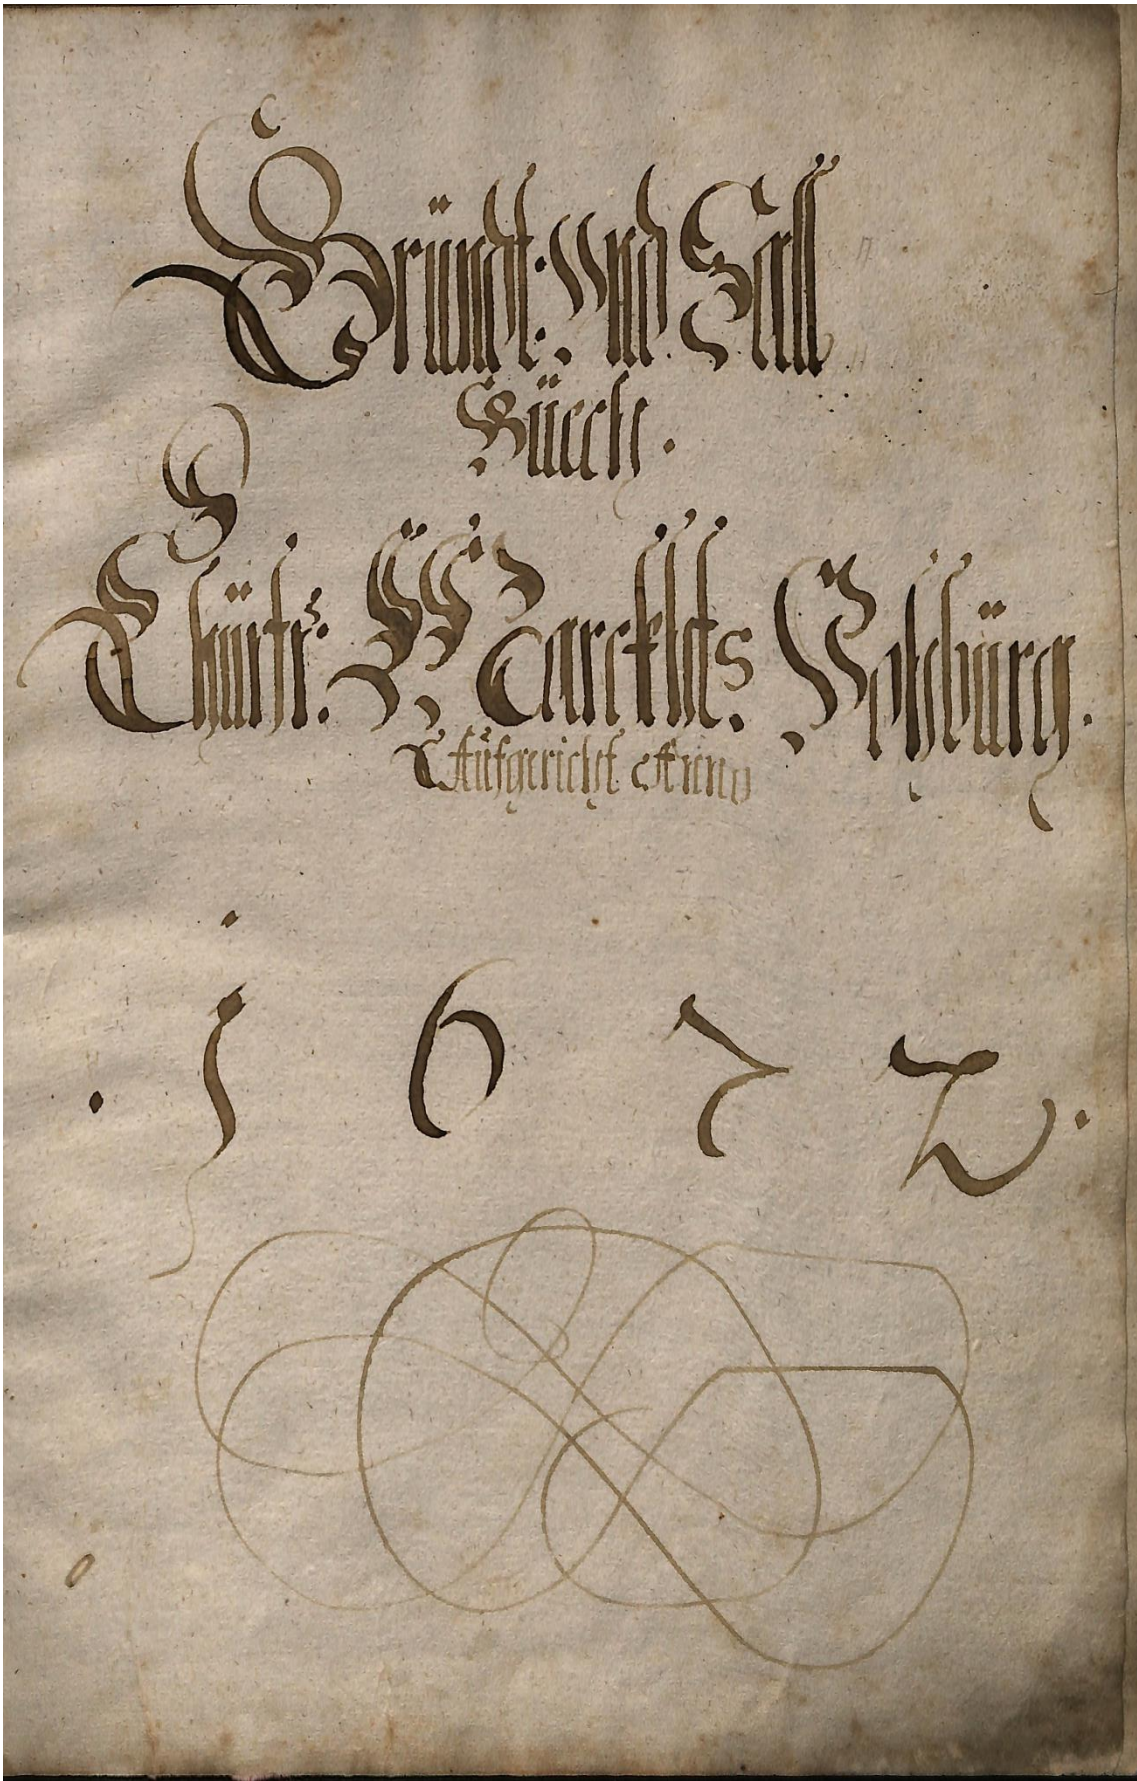 Gründt: vnd Sall
Büech.
Churfr: Marckhts Vohbürg.
Aufgericht Anno
.1672.